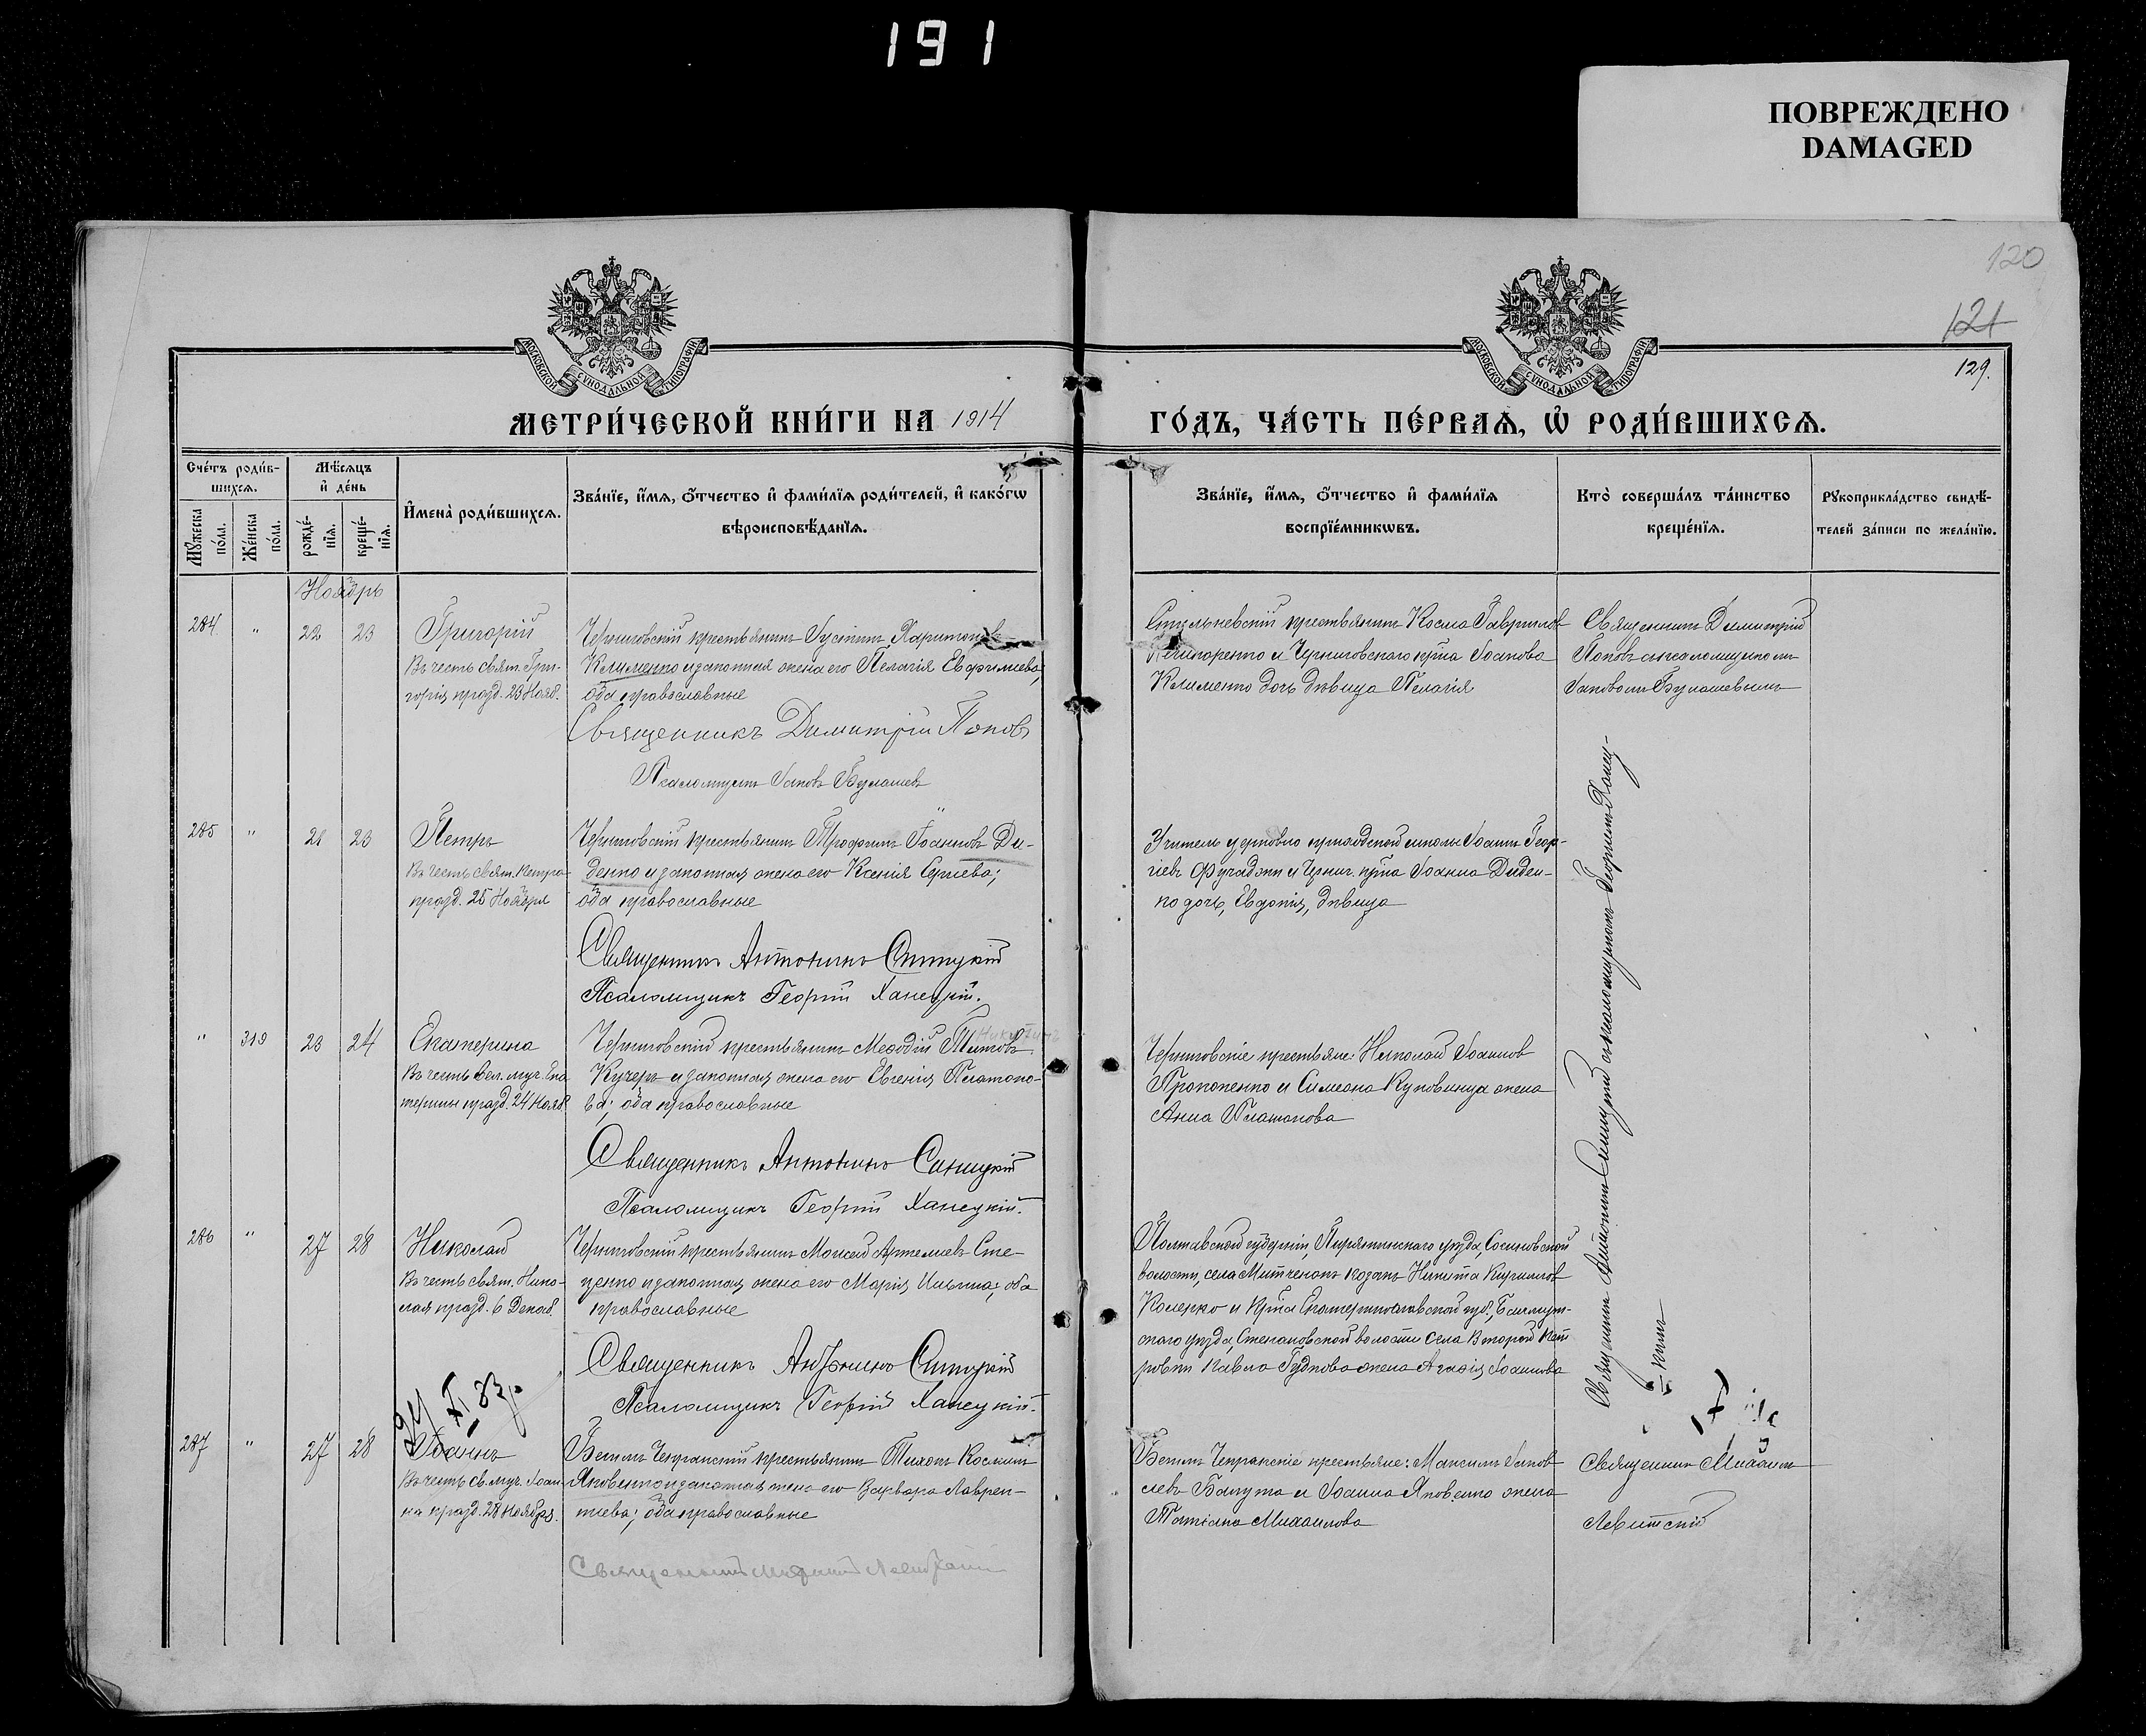 191
ПОВРЕЖДЕНО
DAMAGED
120
121
129.
МОСКОВСКОЙ СѴНОДАЛЬНОЙ ТИПОГРАФІИ
МОСКОВСКОЙ СѴНОДАЛЬНОЙ ТИПОГРАФІИ
МЕТРИ́ЧЕСКОЙ КНИ́ГИ НА 1914
ГО́ДЪ, ЧА́СТЬ ПЕ́РВАѦ, Ѡ҆ РОДИ́ВШИХСѦ.
Сче́тъ роди́в-
шихсѧ.
Мѣ́сѧцъ
и҆ де́нь
Мꙋ́жеска по́ла.
Же́нска по́ла.
рожде́-
нїѧ.
креще́-
нїѧ.
И҆мена̀ роди́вшихсѧ.
Зва́нїе, и҆́мѧ, ѻ҆́тчество и҆ фами́лїѧ роди́телей, и҆ како́гѡ
вѣроисповѣ́данїѧ.
Зва́нїе, и҆́мѧ, ѻ҆́тчество и҆ фами́лїѧ
воспрїе́мникѡвъ.
Кто̀ соверша́лъ та́инство
креще́нїѧ.
Рꙋкоприкла́дство свидѣ́-
телей за́писи по жела́нїю.
Ноябрь
284 " 22 23 Григорій
Въ честь свят. Гри-
горія, празд. 23 Нояб.
Черниговскій крестьянинъ Іустинъ Харитоновъ
Клименко и законная жена его Пелагія Евфимиева;
оба православные
Священникъ Димитрій Поповъ
Псаломщикъ Іаковъ Булашев
крестьянинъ Косма Гавриловъ
Нечипоренко и Черниговскаго кр-на Іоанова
Клименко дочь дѣвица Пелагія
Священникъ Димитрій
Поповъ съ псаломщикомъ
Іаковомъ Булашевымъ
285 " 21 23 Петръ
Въ честь свят. Петра
празд. 25 Ноября
Черниговскій крестьянинъ Трофимъ Іоанновъ Ди-
денко и законная жена его Ксенія Сергіева;
оба православные
Священникъ Антонинъ Синицкій
Псаломщикъ Георгій Ханецкій.
Учитель церковно приходской школы Іоаннъ Геор-
гіевъ и Черниг. кр-на Іоанна Диден-
ко дочь, Евдокія, дѣвица
" 319 23 24 Екатерина
Въ честь вел. муч. Ека-
терины празд. 24 Нояб.
Черниговскій крестьянинъ Меѳодій Титовъ
Кучеръ и законная жена его Евгенія Платоно-
ва; оба православные
Священникъ Антонинъ Синицкій
Псаломщикъ Георгій Ханецкій.
Черниговскіе крестьяне: Николай Іоанновъ
Прокопенко и Симеона Куповинца жена
Анна Платонова
286 " 27 28 Николай
Въ честь свят. Нико-
лая празд. 6 Декаб.
Черниговскій крестьянинъ Моисей Артемиевъ Сте-
ценко и законная жена его Марія Ильина; оба
православные
Священникъ Антонинъ Синицкій
Псаломщикъ Георгій Ханецкій.
Полтавской губерніи, Пирятинскаго уѣзда, Сосиновской
волости, села Митченокъ козакъ Никита Кирилловъ
и кр-на Екатеринославской губ., Бахмут-
скаго уѣзда, Степановской волости села Второй
Павла Гудкова жена Агафія Іоаннова
Священникъ Антонинъ Синицкій съ псаломщикомъ Георгіемъ Ханец-
кимъ
287 " 27 28 Іоаннъ
Въ честь св. муч. Іоан-
на празд. 28 Ноября.
крестьянинъ Тихонъ Косминъ
Яковенко и законная жена его Варвара Лаврен-
тиева; оба православные
Священникъ Михаилъ Левитскій
крестьяне: Максимъ Іаков-
левъ и Іоанна Яковенко жена
Татіана Михаилова
Священникъ Михаилъ
Левитскій